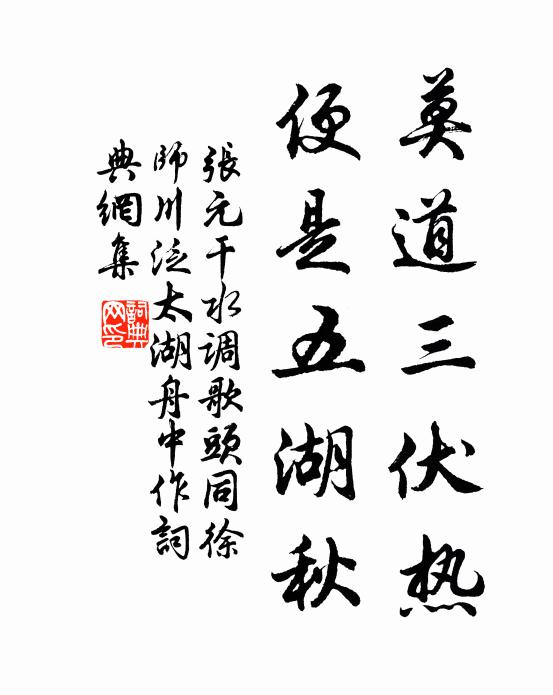 莫道三伏热
便是五湖秋
張元干水调歌頭同徐
師川泛太湖舟中作詞
典網集
詞典
网印